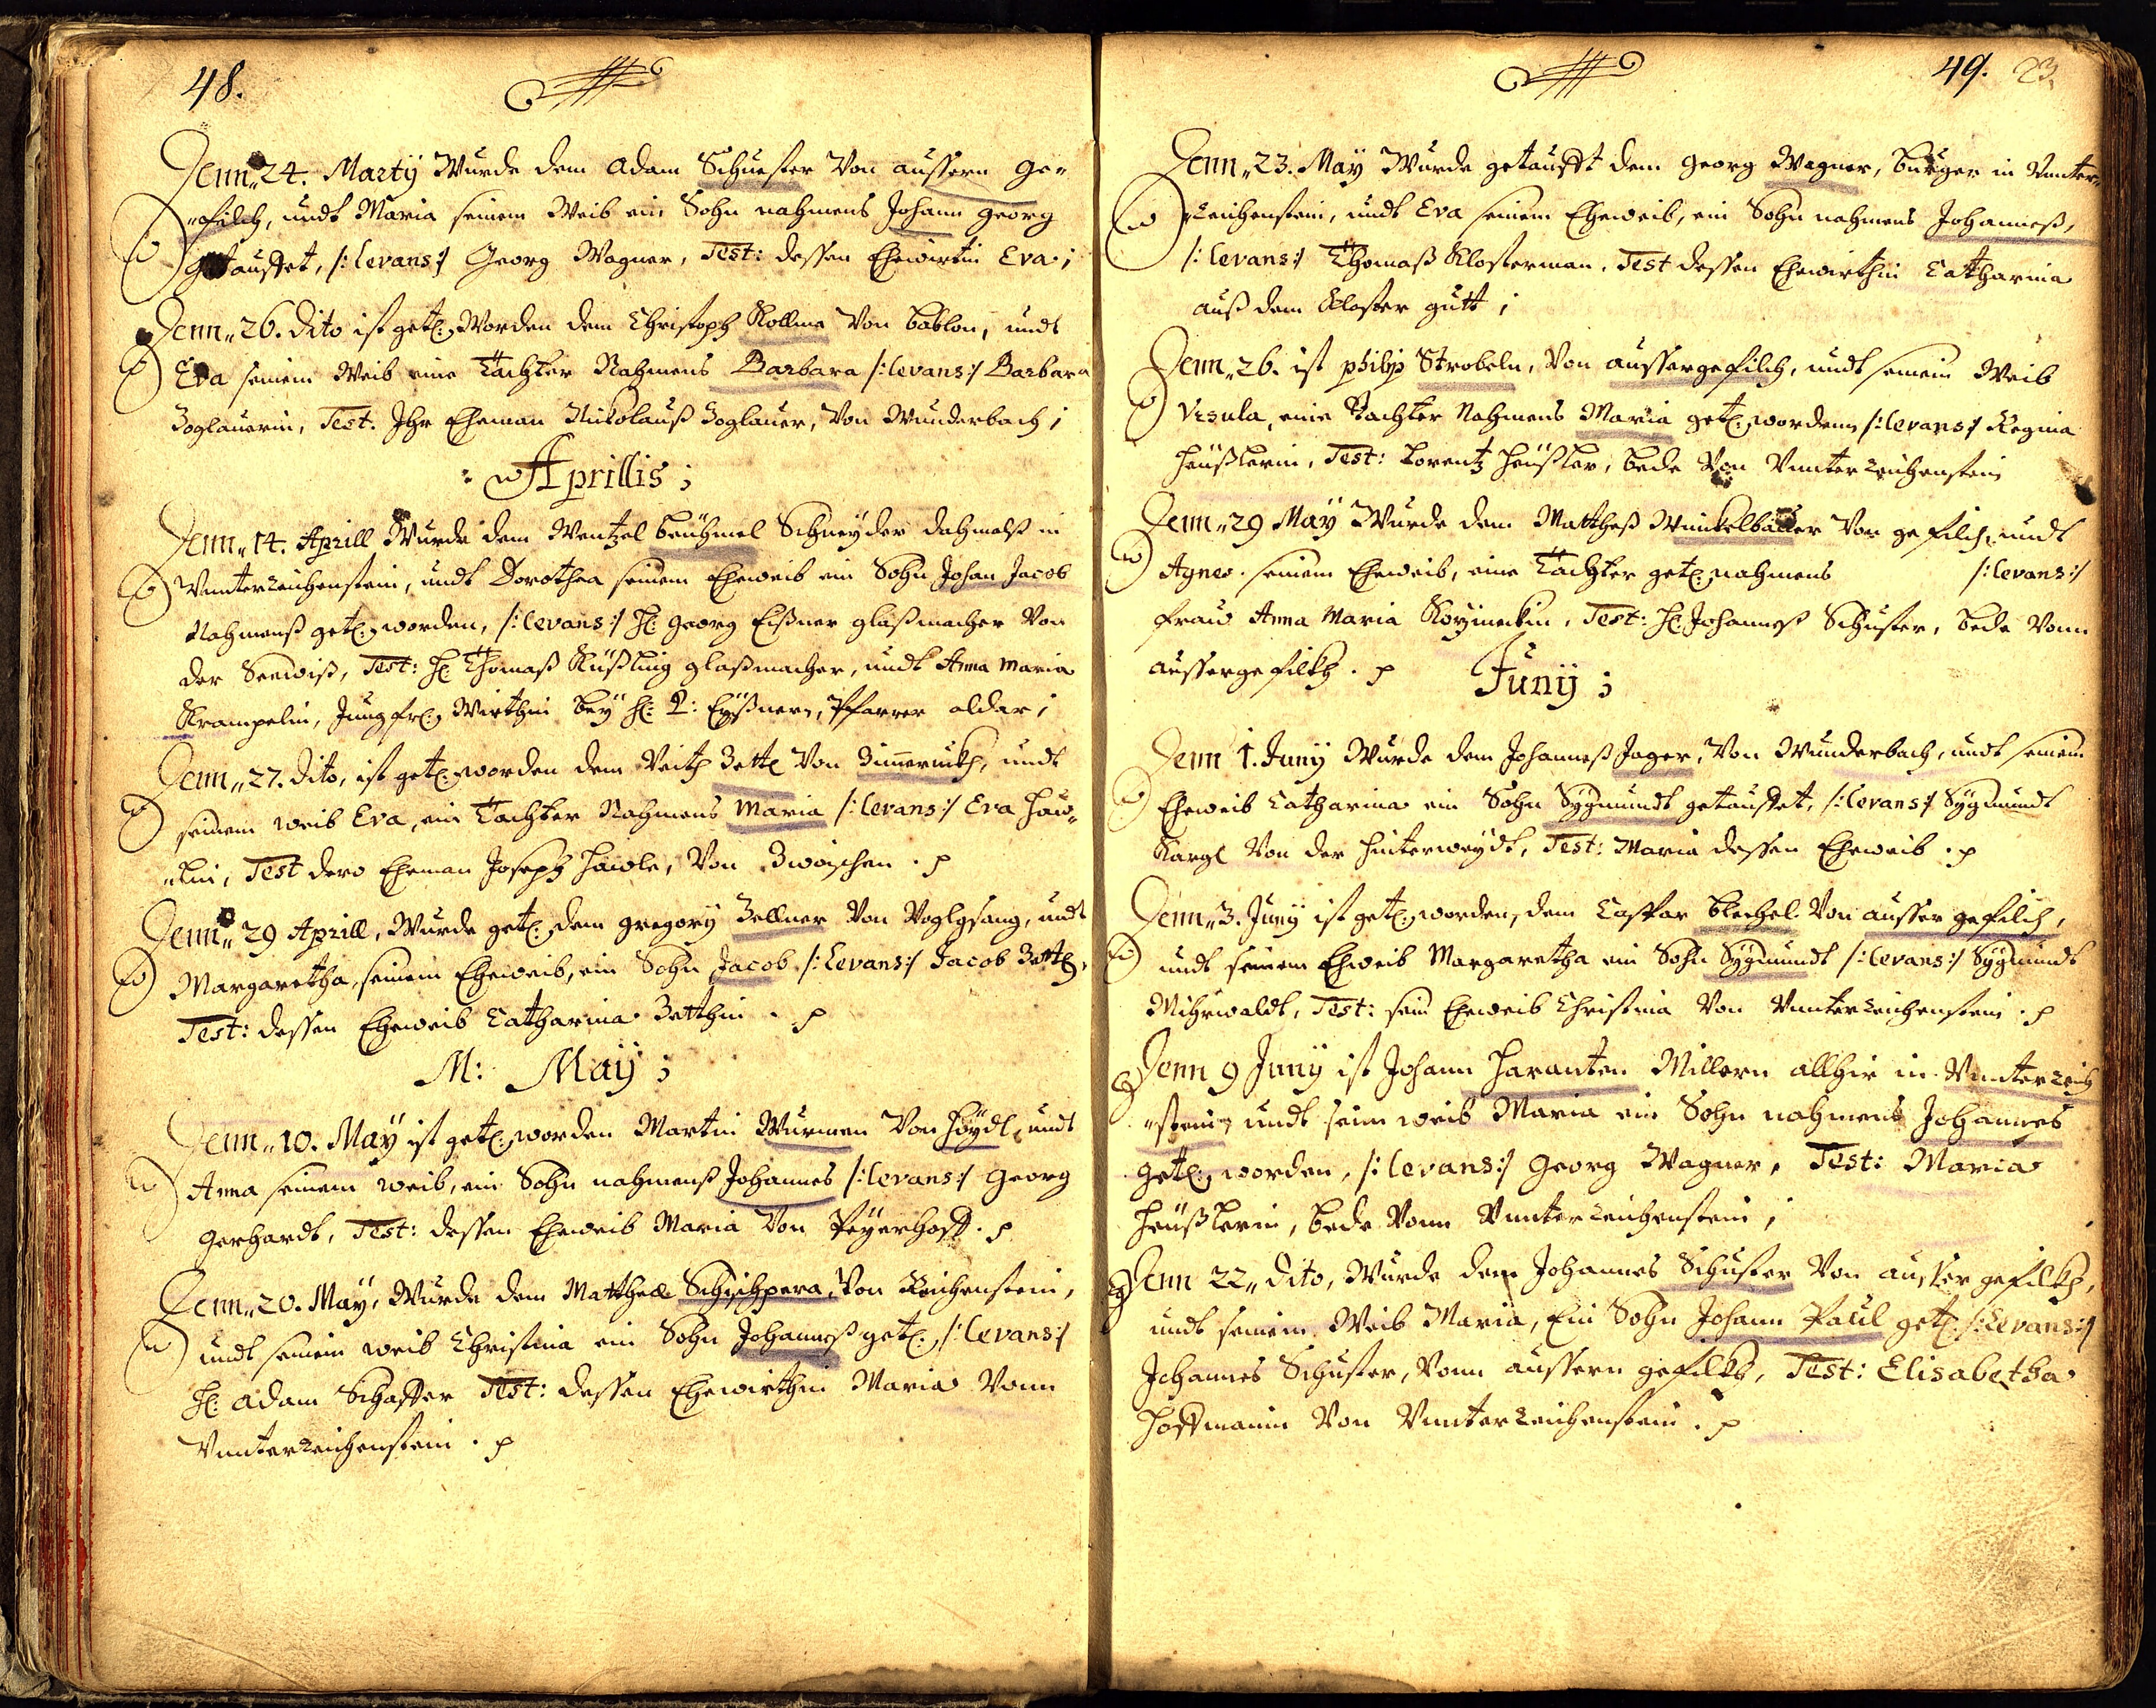 48.
Denn„ 24. Martÿ Wurde dem Adam Schuester Von aussern Ge„
„filch, undt Maria seinem Weib ein Sohn nahmens Johann Georg
getauffet, /:levans:/ Georg Wagner, Test: dessen Ehewirtin Eva;
Denn„ 26. dito ist getl: Worden dem Christoph Kollma Von bablon, undt
Eva seinem Weib eine Tachter Nahmens Barbara /:levans:/ Barbara
Zoglauerin, Test. Ihr Eheman Nicolauß Zoglauer, Von Wunderbach;
: Aprillis;
Denn„ 14. Aprill Wurde dem Wentzel beuhmel Schneyder dahmalß in
Vnnterreichenstein, undt Dorothea seinem Eheweib ein Sohn Johan Jacob
Nahmenß getl: worden, /:levans:/ H: Georg Eißner glaßmacher Von
der Seewiß, Test: H: Thomaß Rüßling glaßmacher, undt Anna Maria
Krampelin, Jungfr: Wirthin beÿ H: P: Eÿßnern, Pfarrer alda;
Denn„ 27. dito, ist getl: worden dem Veith Zettl Von Zimerruckh, undt
seinem weib Eva, ein Tachter Nahmens Maria /:levans:/ Eva Haw„
„lin, Test dero Eheman Joseph Hawle, Von Zwoischen. p
Denn„ 29 Aprill, Wurde getl: dem gregorÿ Zellner Von Voglgsang, undt
Margaretha, seinem Eheweib, ein Sohn Jacob /:levans:/ Jacob Zettl,
Test: dessen Eheweib Catharina Zetthin. p
M: Maÿ;
Denn„ 10. Maÿ ist getl: worden Martin Wurmen Von Höÿdl, undt
Anna seinem weib, ein Sohn nahmenß Johannes /:levans:/ Georg
Gerhardt, Test: dessen Eheweib Maria Von Peÿerhoff. p
Denn„ 20. Maÿ, Wurde dem Matthell Schischpera, Von Reichenstein,
undt seinem weib Christina ein Sohn Johanneß getl: /:levans:/
H: Adam Schaffer Test: dessen Ehewirthin Maria Vonn
Vnnterreichenstein. p
49. 23.
Denn„ 23. Maÿ Wurde getaufft dem Georg Wagner, burger in Vnnter„
„reichenstein, undt Eva seinem Eheweib, ein Sohn nahmens Johanneß,
/:levans:/ Thomaß Klosterman, Test dessen Ehewirthin Catharina
auß dem Kloster gutt;
Denn„ 26. ist philip Strobeln, Von aussergefilch, undt seinem Weib
Vrsula, eine Tachter Nahmens Maria getl: worden, /:levans:/ Regina
Heußlerin, Test: Lorentz Heußler, bede Von Vnnterreichenstein
Denn„ 29 Maÿ Wurde dem Mattheß Winkelbauer Von gefilch, undt
Agnes seinem Eheweib, eine Tachter getl: nahmens /:levans:/
fraw Anna Maria Kozineckin, Test: H: Johanneß Schuster, bede Vonn
aussergefilkh. p
Junÿ;
Denn 1. Junÿ Wurde dem Johanneß Jager, Von Wunderbach, undt seinem
Eheweib Catharina ein Sohn Sÿgmundt getauffet, /:levans:/ Sÿgmundt
Kargl Von der Hinterweÿdt, Test: Maria dessen Eheweib. p
Denn„ 3. Junÿ ist getl: worden, dem Casspar blechel Von ausser gefilch,
undt seinem Eheweib Margaretha ein Sohn Sÿgmundt /:levans:/ Sÿgmundt
Mihrwaldt, Test: sein Eheweib Christina Von Vnnterreichenstein. p
Denn 9 Junÿ ist Johann Haranten Millern allhir in Vnnterreich
„stein, undt sein weib Maria ein Sohn nahmens Johannes
getl: worden, /:levans:/ Georg Wagner, Test: Maria
Heußlerin, bede Vonn Vnnterreichenstein;
Denn 22„ dito, Wurde dem Johannes Schuster Von ausser gefilkh,
undt seinem Weib Maria, Ein Sohn Johann Paul getl: /:levans:/
Johannes Schuster, Vonn aussern gefilkh, Test: Elisabetha
Hoffmanin Von Vnnterreichenstein. p